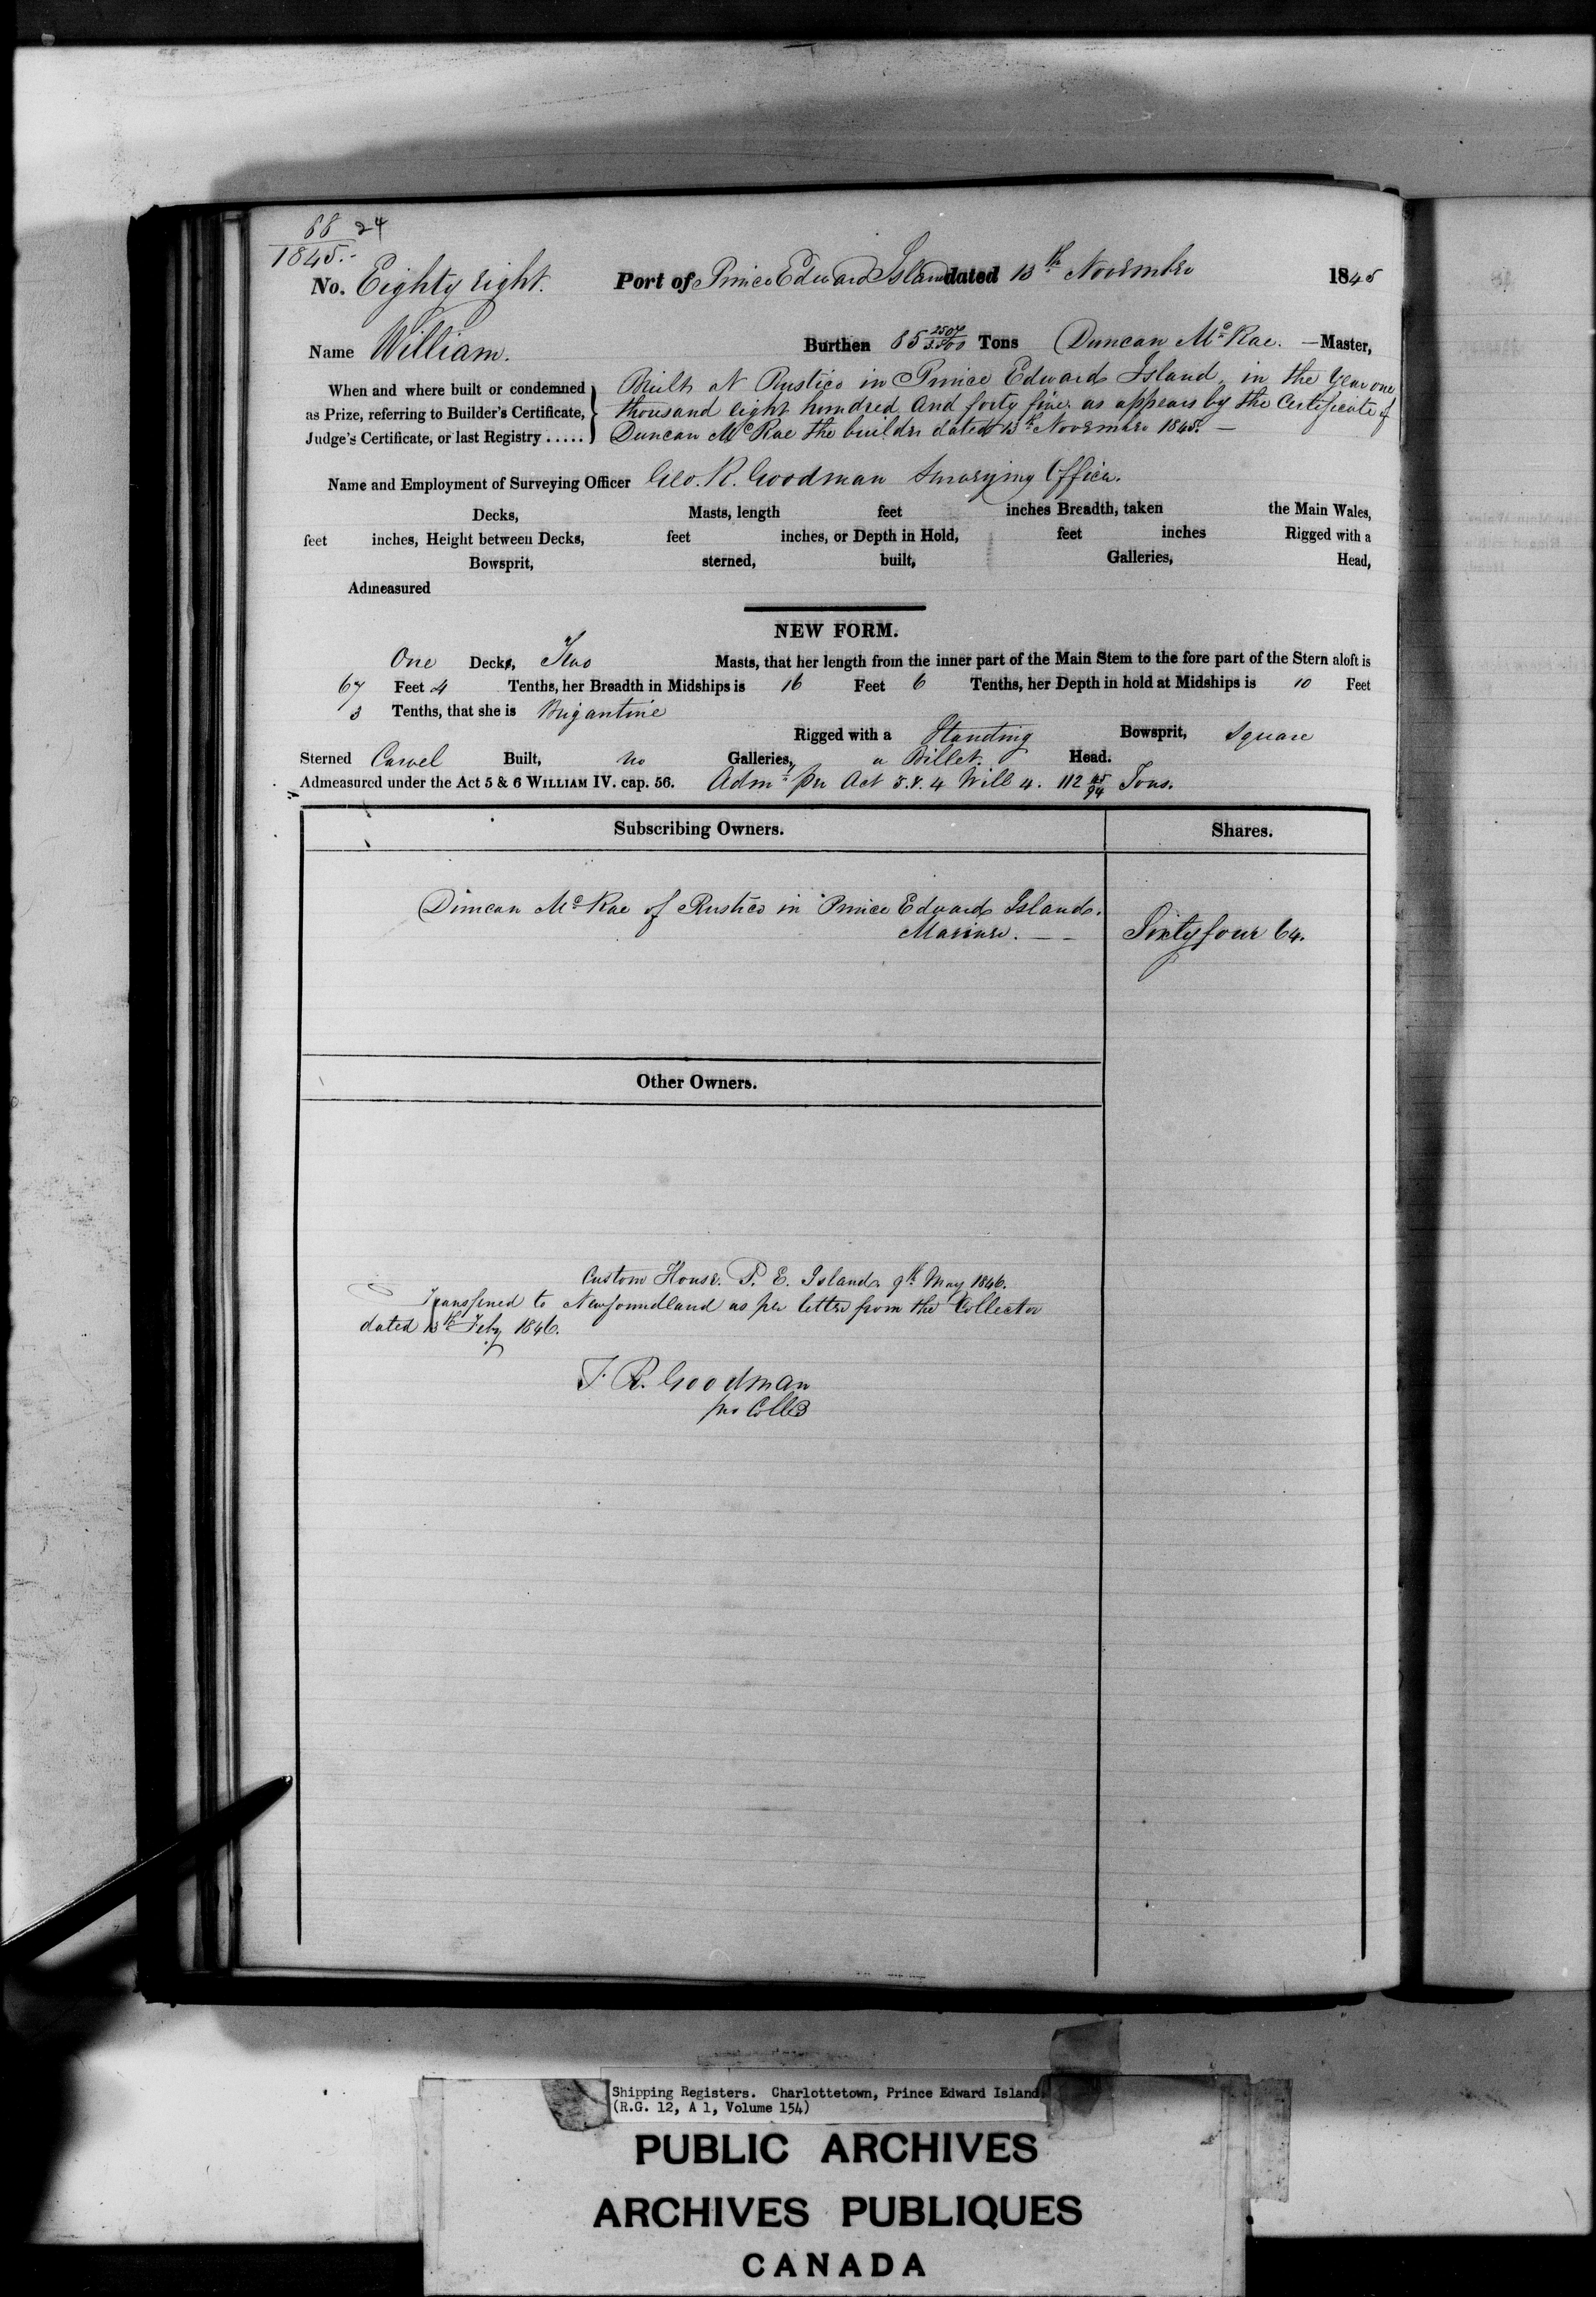 88 24
1845.-
No. Eighty eight. Port of Prince Edward Island dated 13th November 1845
Name William. Burthen 85 2507/3500 Tons Duncan McRae. — Master,
When and where built or condemned Built at Rustico in Prince Edward Island, in the Year one
as Prize, referring to Builder's Certificate, thousand eight hundred and forty five. as appears by the Certificate of
Judge's Certificate, or last Registry ..... Duncan McRae the builder dated 13th November 1845. —
Name and Employment of Surveying Officer Geo. R. Goodman Surveying Officer.
Decks, Masts, length feet inches Breadth, taken the Main Wales,
feet inches, Height between Decks, feet inches, or Depth in Hold, feet inches Rigged with a
Bowsprit, sterned, built, Galleries, Head,
Admeasured
NEW FORM.
One Decks, Two Masts, that her length from the inner part of the Main Stem to the fore part of the Stern aloft is
67 Feet 4 Tenths, her Breadth in Midships is 16 Feet 6 Tenths, her Depth in hold at Midships is 10 Feet
3 Tenths, that she is Brigantine
Rigged with a Standing Bowsprit, Square
Sterned Carvel Built, no Galleries, a Billet. Head.
Admeasured under the Act 5 & 6 WILLIAM IV. cap. 56. Adm. per Act 3 & 4 Will 4. 112 45/94 Tons.
Subscribing Owners. Shares.
Duncan McRae of Rustico in Prince Edward Island.
Mariner. — — Sixty four 64.
Other Owners.
Custom House. P. E. Island. 9th May 1846.
Transferred to Newfoundland as per letter from the Collector
dated 13th Feby 1846.
T. R. Goodman
pro Collr
Shipping Registers. Charlottetown, Prince Edward Island.
(R.G. 12, A 1, Volume 154)
PUBLIC ARCHIVES
ARCHIVES PUBLIQUES
CANADA